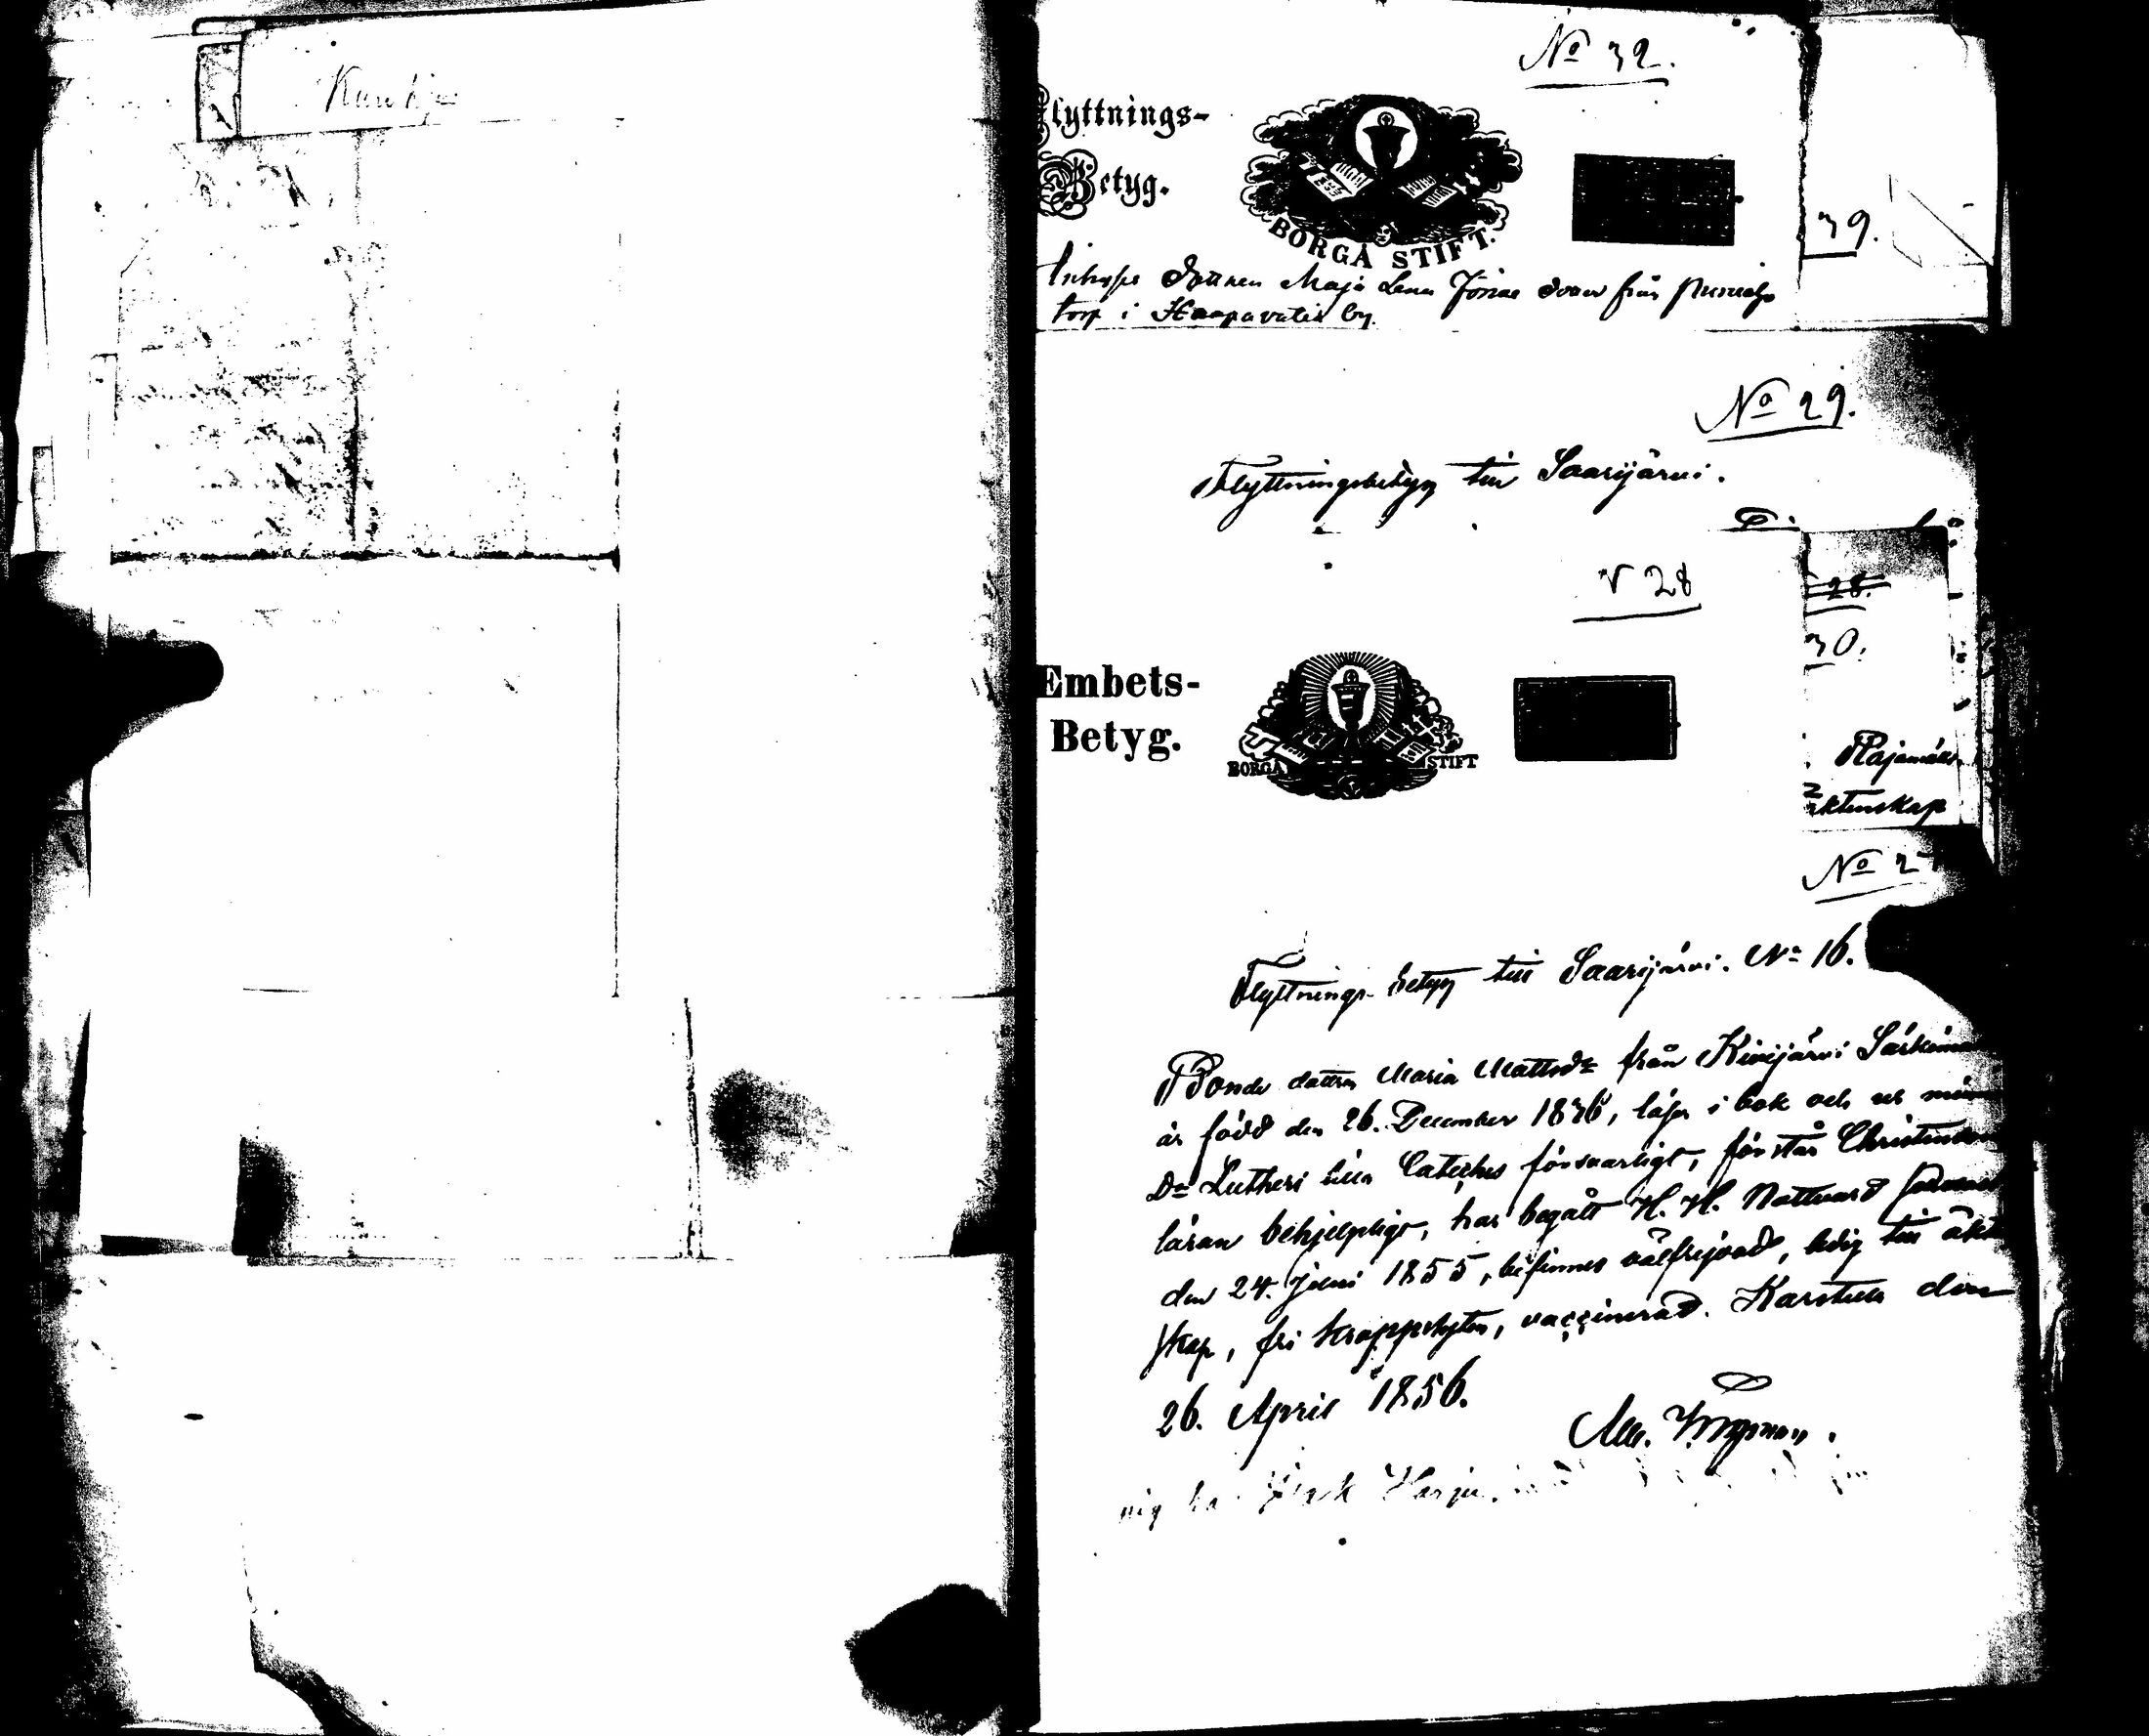 No 32.
Flyttnings-
Betyg.
BORGÅ STIFT.
39.
Maja Lena
torp i Haapavatia by.
No 29.
Flyttningsbetyg till Saarijärvi.
N 28
28.
30.
Embets-
Betyg.
BORGÅ STIFT
Rajamäki
äktenskap
No 27
Flyttnings-betyg till Saarijärvi. No 16.
Bonde dottren Maria Mattsdr från Kivijärvi
är född den 26. December 1836, läser i bok och ur
Dr Lutheri lilla Cateches försvarligt, förstår Christendoms
läran behjelpligt, har begått H. H. Nattvard
den 24. Juni 1855, befinnes välfrejdad, ledig till äkten
skap, fri kroppslyten, vaccinerad. Karstula den
26. April 1856.